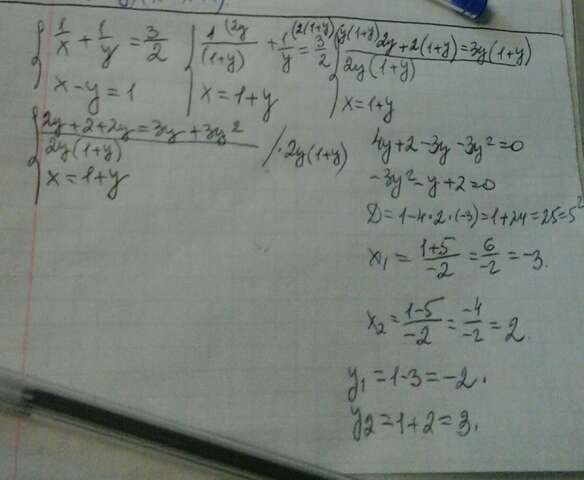 1/x + 1/y = 3/2
x-y=1
1(2y/(1+y) + 1(2(1+y)/y = 3(y(1+y)/2
x=1+y
2y+2(1+y)=3y(1+y)
2y(1+y)
x=1+y
2y+2+2y=3y+3y²
2y(1+y)
/·2y(1+y)
x=1+y
4y+2-3y-3y²=0
-3y²-y+2=0
D=1-4·2·(-3)=1+24=25=5²
x₁ = (1+5)/-2 = 6/-2 = -3.
x₂ = (1-5)/-2 = -4/-2 = 2.
y₁=1-3=-2.
y₂=1+2=3.